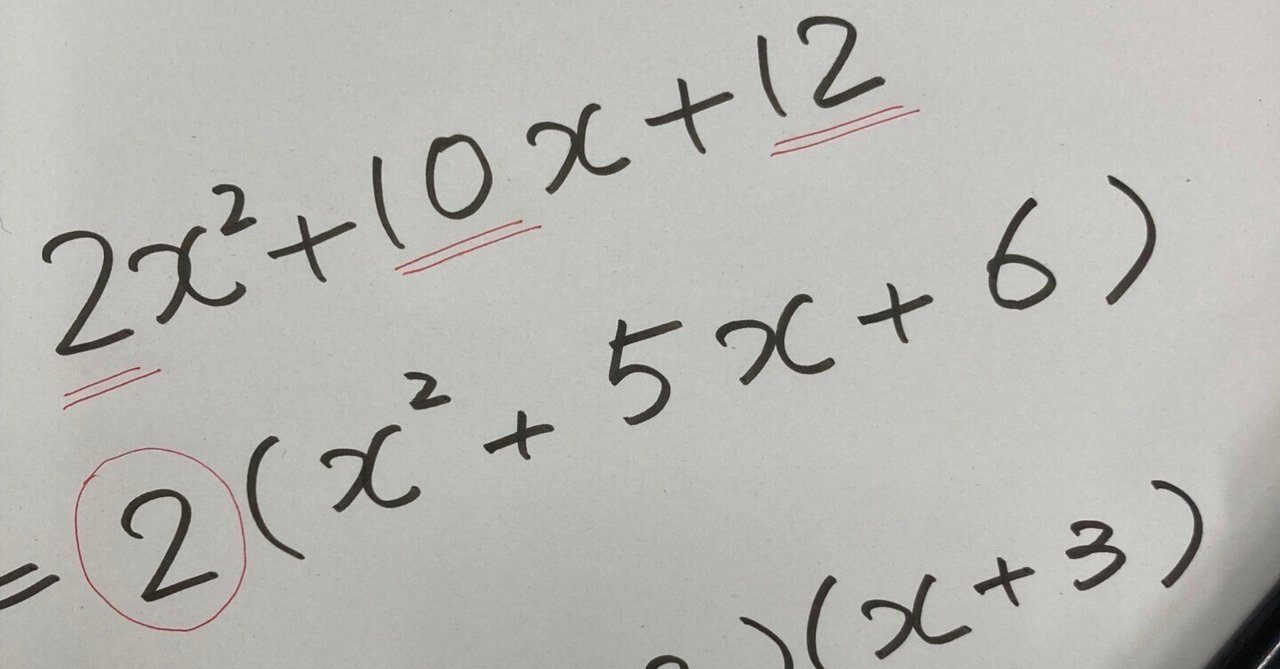 2x²+10x+12
=2(x²+5x+6)
)(x+3)